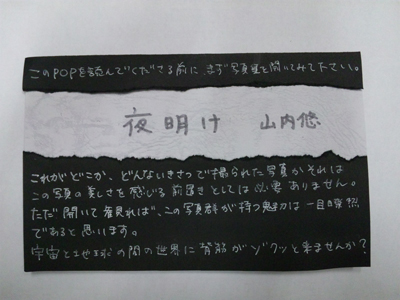 このPOPを読んでくださる前に、まず写真集を開いてみて下さい。
夜明け 山内悠
これがどこか、どんないきさつで撮られた写真かそれは
この写真の美しさを感じる前置きとしては必要ありません。
ただ開いて観れば、この写真群が持つ魅力は一目瞭然
であると思います。
宇宙と地球の間の世界に背筋がゾクッと来ませんか？